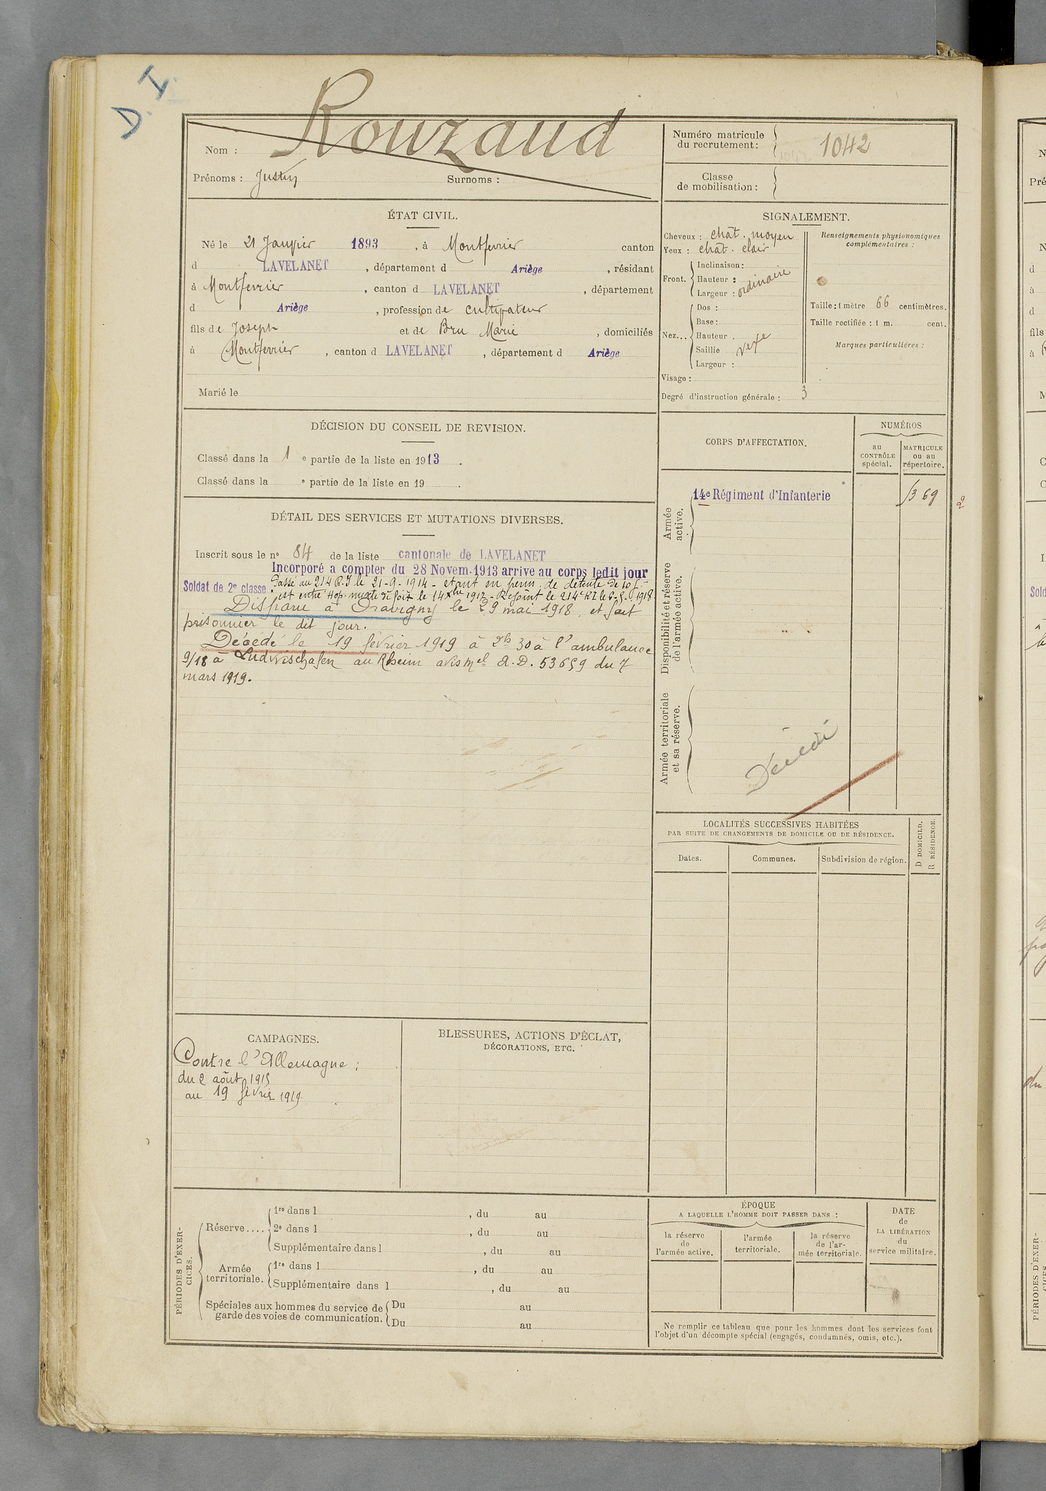 D. I.
Rouzaud
Nom :
Prénoms : Justin Surnoms :
Numéro matricule du recrutement : 1042
Classe de mobilisation :
ÉTAT CIVIL.
Né le 21 Janvier 1893, à Montferrier canton
d LAVELANET, département d Ariège, résidant
à Montferrier, canton d LAVELANET, département
d Ariège, profession de cultivateur
fils de Joseph et de Bru Marie, domiciliés
à Montferrier, canton d LAVELANET, département d Ariège
Marié le
SIGNALEMENT.
Cheveux : chât. moyen
Yeux : chât. clair
Front. Inclinaison :
Hauteur : ordinaire
Largeur :
Nez... Dos :
Base :
Hauteur .
Saillie vexe
Largeur :
Visage :
Degré d'instruction générale : 3
Renseignements physionomiques complémentaires :
Taille : 1 mètre 66 centimètres.
Taille rectifiée : 1 m. cent.
Marques particulières :
DÉCISION DU CONSEIL DE REVISION.
Classé dans la 1 e partie de la liste en 1913.
Classé dans la e partie de la liste en 19 .
DÉTAIL DES SERVICES ET MUTATIONS DIVERSES.
Inscrit sous le n° 84 de la liste cantonale de LAVELANET
Incorporé a compter du 28 Novem. 1913 arrive au corps ledit jour
Soldat de 2e classe Passé au 214 R.I le 21-9-1914 - étant en perm. de détente de 10 j
est entré Hop. mixte de Foix le 14 Xbre 1917 - Rejoint le 214e RI le
Disparu à Dravigny le 29 mai 1918, et fait
prisonnier le dit jour.
Décédé le 19 février 1919 à 2h 30 à l'ambulance
9/18 à Ludwischafen au Rhein avis mel A.D. 53659 du 7
mars 1919.
CORPS D'AFFECTATION.
NUMÉROS
au CONTRÔLE spécial.
MATRICULE ou au répertoire.
Armée active.
14e Régiment d'Infanterie
1369
Disponibilité et réserve de l'armée active.
Armée territoriale et sa réserve.
Décédé
LOCALITÉS SUCCESSIVES HABITÉES
PAR SUITE DE CHANGEMENTS DE DOMICILE OU DE RÉSIDENCE.
Dates.
Communes.
Subdivision de région.
D DOMICILE.
R RÉSIDENCE.
CAMPAGNES.
Contre l'Allemagne :
du 2 août
au 19 février 1919
BLESSURES, ACTIONS D'ÉCLAT,
DÉCORATIONS, ETC.
PÉRIODES D'EXERCICES.
Réserve.... 1re dans l , du au
2e dans l , du au
Supplémentaire dans l , du au
Armée territoriale. 1re dans l , du au
Supplémentaire dans l , du au
Spéciales aux hommes du service de garde des voies de communication. Du au
Du au
ÉPOQUE
A LAQUELLE L'HOMME DOIT PASSER DANS :
la réserve de l'armée active.
l'armée territoriale.
la réserve de l'armée territoriale.
DATE de LA LIBÉRATION du service militaire.
Ne remplir ce tableau que pour les hommes dont les services font
l'objet d'un décompte spécial (engagés, condamnés, omis, etc.).